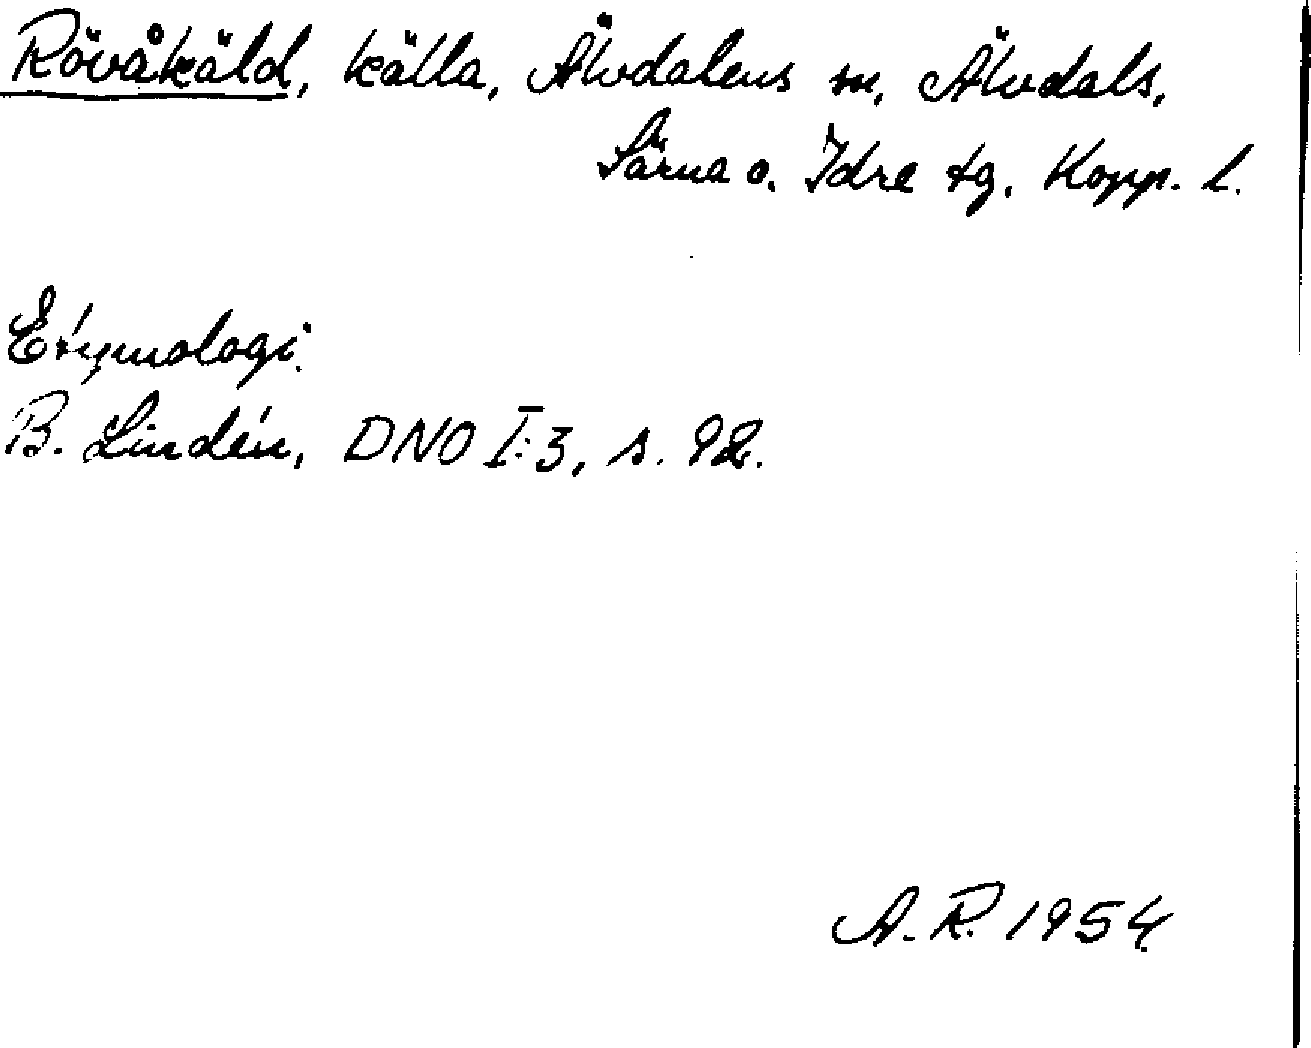 Rövåkäld, källa, Älvdalens m, Älvdals,
Särna o. Idre tg. Kopp. l.
Etymologi.
B. Lindén, DNO I:3, s. 92.
A. R. 1954